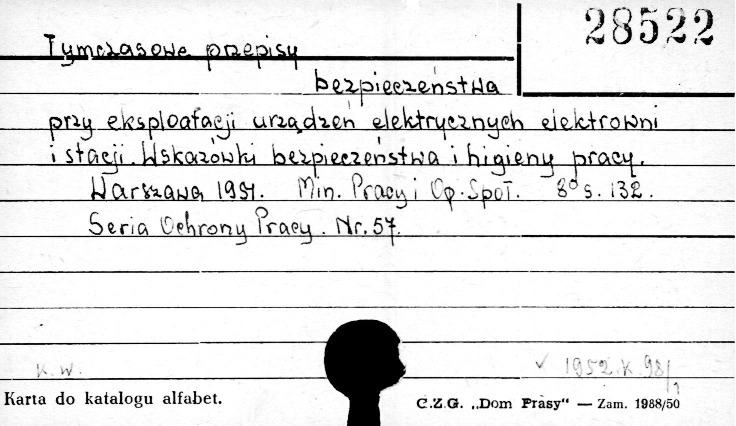 28522
Tymczasowe przepisy
bezpieczeństwa
przy eksploatacji urządzeń elektrycznych elektrowni
i stacji. Wskazówki bezpieczeństwa i higieny pracy.
Warszawa 1951. Min. Pracy i Op. Społ. 8° s. 132.
Seria Ochrony Pracy. Nr. 57.
K. W. ✓ 1952.K.98/1
Karta do katalogu alfabet. C.Z.G. „Dom Prasy" — Zam. 1988/50